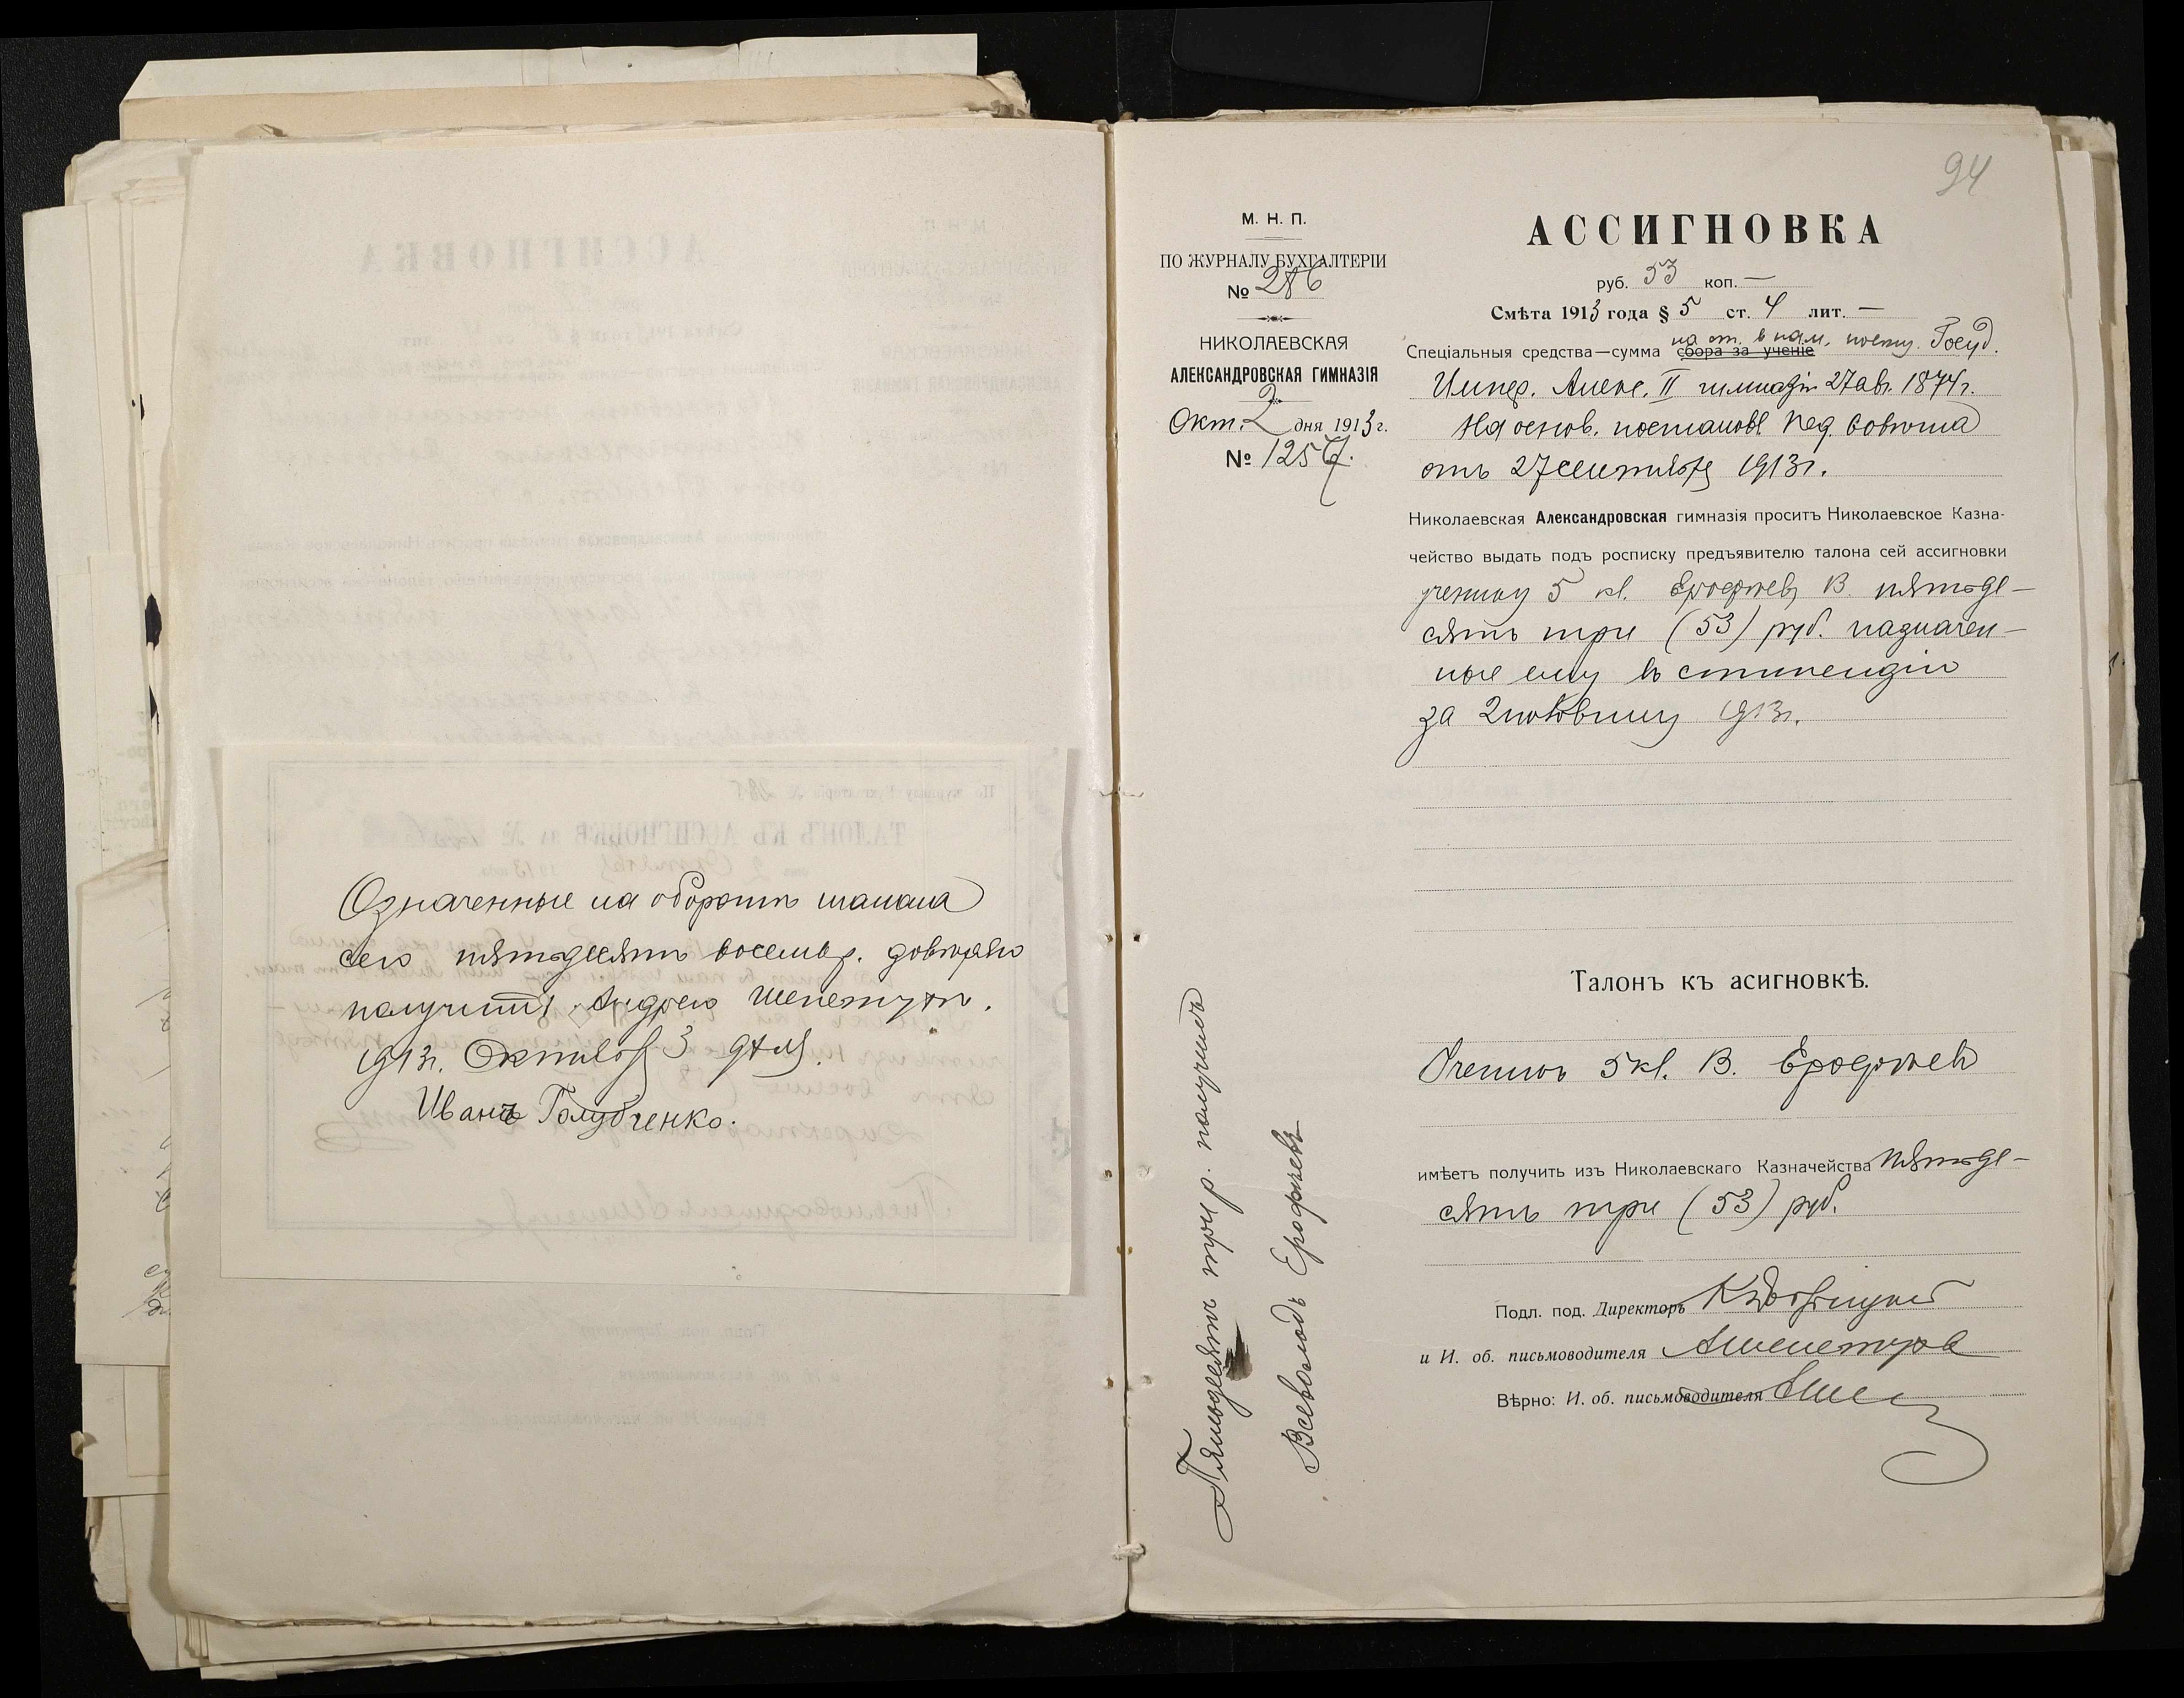 Означенные на оборотѣ талона
сего пятьдесятъ восемь р. довѣряю
получить Андрею Шепетухѣ.
1913 г. Октября 3 дня.
Иванъ Голубченко.
94
М. Н. П.
ПО ЖУРНАЛУ БУХГАЛТЕРІИ
№ 286
НИКОЛАЕВСКАЯ
АЛЕКСАНДРОВСКАЯ ГИМНАЗІЯ
Окт. 2 дня 1913 г.
№ 1257.
АССИГНОВКА
руб. 53 коп. —
Смѣта 1913 года § 5 ст. 4 лит. —
на ст. в пам. посещ. Госуд.
Спеціальныя средства—сумма сбора за ученіе
Импер. Алекс. II гимназіи 27 авг. 1874 г.
На основ. постановл Пед. Совѣта
отъ 27 сентября 1913 г.
Николаевская Александровская гимназія проситъ Николаевское Казна-
чейство выдать подъ росписку предъявителю талона сей ассигновки
ученику 5 кл. Ерофѣеву В. пятьде-
сятъ три (53) руб. назначен-
ные ему въ стипендію
за 2 половину 1913 г.
Талонъ къ асигновкѣ.
Ученикъ 5 кл. В. Ерофѣевъ
имѣетъ получить изъ Николаевскаго Казначейства пятьде-
сятъ три (53) руб.
Подл. под. Директоръ
и И. об. письмоводителя А Шепетуха
Вѣрно: И. об. письмоводителя
Пятьдесятъ три р. получилъ
Всеволодъ Ерофѣевъ